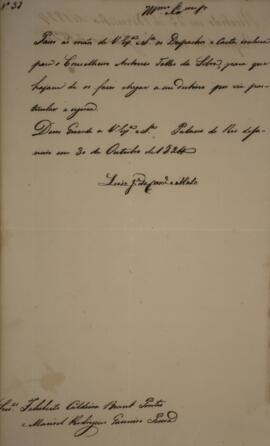 Nº 32
Illmos e Exmos Snrs
Passo às mãos de V. Exas. os Despachos e Carta inclusa
para o Conselheiro Antonio Telles da Silva, para que
hajam de os fazer chegar a seu destino por via
particular e segura.
Deos Guarde a V. Exas. Palacio do Rio de Ja-
neiro em 30 de Outubro de 1824
Luiz Jé de Carvº e Mello
Felisberto Caldeira Brant Pontes
e Manoel Rodrigues Gameiro Pessoa